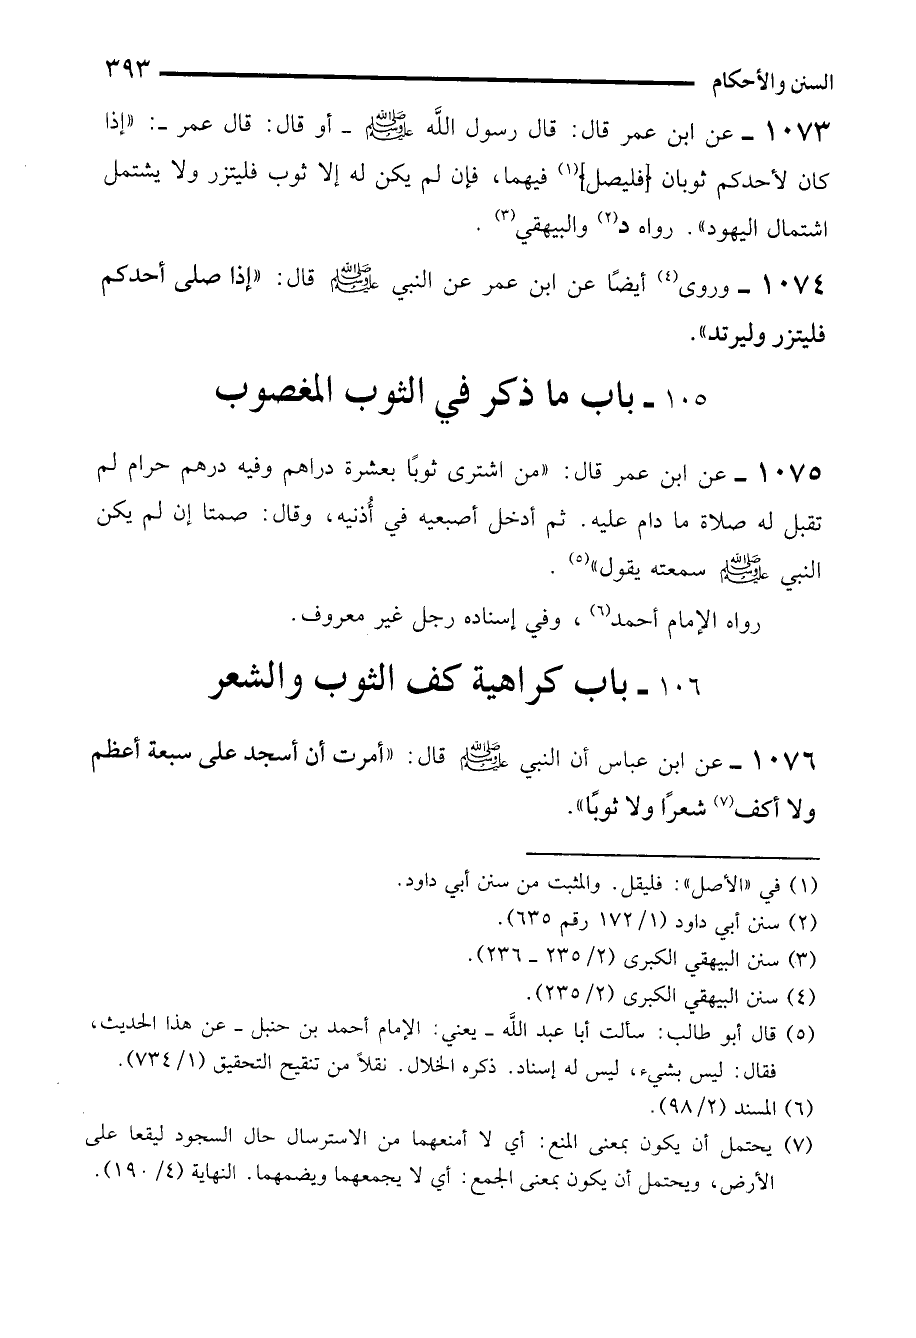 السنن والأحكام ٣٩٣
١٠٧٣ ـ عن ابن عمر قال: قال رسول اللَّه ﷺ ـ أو قال: قال عمر ـ: «إذا
كان لأحدكم ثوبان {فليصل}(١) فيهما، فإن لم يكن له إلا ثوب فليتزر ولا يشتمل
اشتمال اليهود». رواه د(٢) والبيهقي(٣) .
١٠٧٤ ـ وروى(٤) أيضًا عن ابن عمر عن النبي ﷺ قال: «إذا صلى أحدكم
فليتزر وليرتد».
١٠٥ ـ باب ما ذكر في الثوب المغصوب
١٠٧٥ ـ عن ابن عمر قال: «من اشترى ثوبًا بعشرة دراهم وفيه درهم حرام لم
تقبل له صلاة ما دام عليه. ثم أدخل أصبعيه في أُذنيه، وقال: صمتا إن لم يكن
النبي ﷺ سمعته يقول»(٥) .
رواه الإمام أحمد(٦) ، وفي إسناده رجل غير معروف.
١٠٦ ـ باب كراهية كف الثوب والشعر
١٠٧٦ ـ عن ابن عباس أن النبي ﷺ قال: «أمرت أن أسجد على سبعة أعظم
ولا أكف(٧) شعرًا ولا ثوبًا».
(١) في «الأصل»: فليقل. والمثبت من سنن أبي داود.
(٢) سنن أبي داود (١/ ١٧٢ رقم ٦٣٥).
(٣) سنن البيهقي الكبرى (٢/ ٢٣٥ ـ ٢٣٦).
(٤) سنن البيهقي الكبرى (٢/ ٢٣٥).
(٥) قال أبو طالب: سألت أبا عبد اللَّه ـ يعني: الإمام أحمد بن حنبل ـ عن هذا الحديث،
فقال: ليس بشيء، ليس له إسناد. ذكره الخلال. نقلاً من تنقيح التحقيق (١/ ٧٣٤).
(٦) المسند (٢/ ٩٨).
(٧) يحتمل أن يكون بمعنى المنع: أي لا أمنعهما من الاسترسال حال السجود ليقعا على
الأرض، ويحتمل أن يكون بمعنى الجمع: أي لا يجمعهما ويضمهما. النهاية (٤/ ١٩٠).